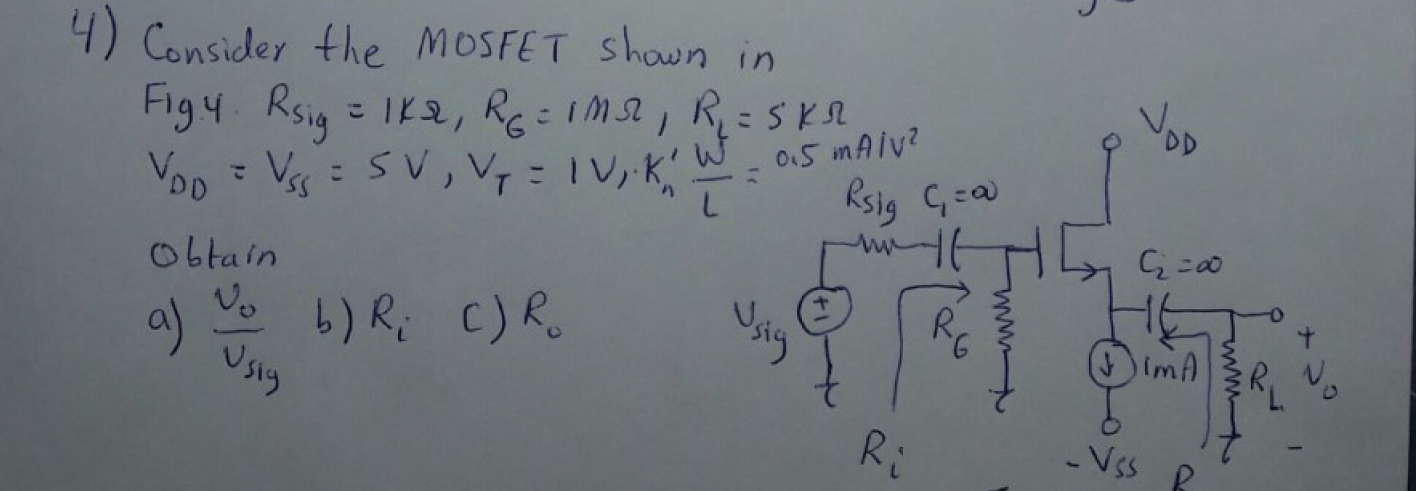 4) Consider the MOSFET shown in
Fig.4. Rsig = 1KΩ, RG = 1MΩ, RL = 5KΩ
VDD = VSS = 5V, VT = 1V, K'n W/L = 0.5 mA/V²
Obtain
a) υo/υsig b) Ri c) Ro
VDD
Rsig C1=∞
C2=∞
υsig
+
-
RG
1mA
RL
+
υo
-
Ri
-VSS
R